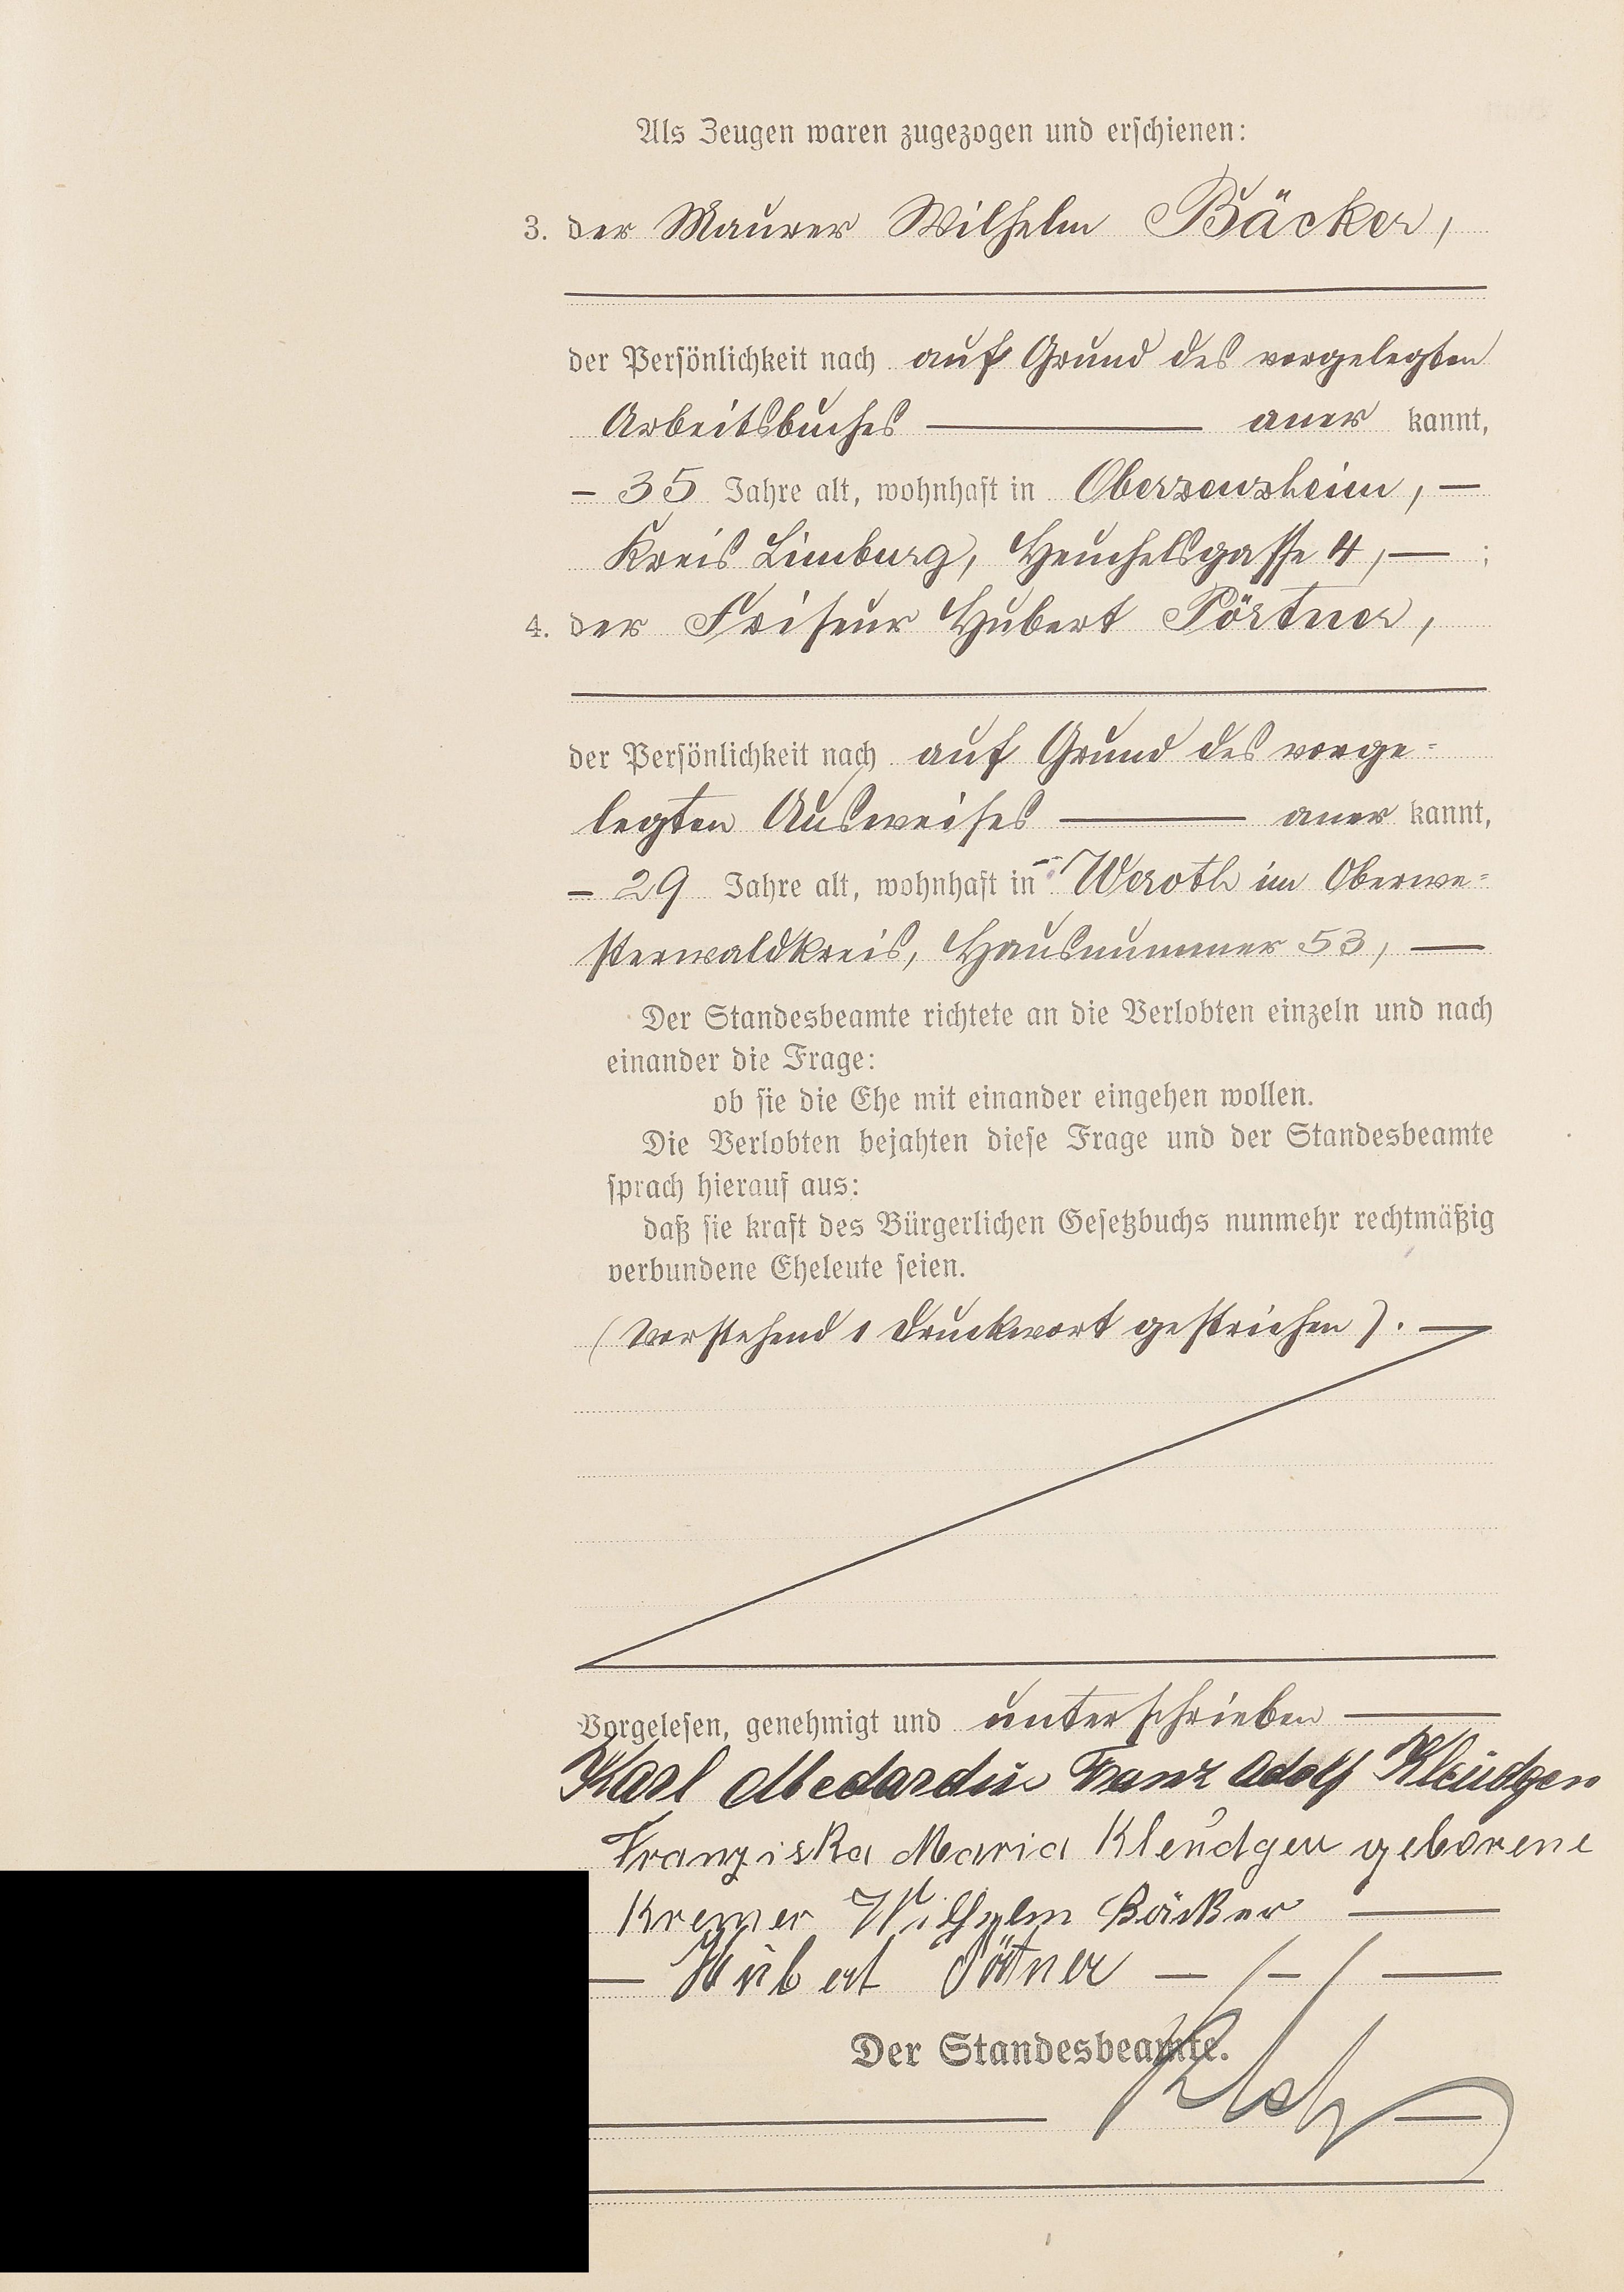 Als Zeugen waren zugezogen und erschienen:
3. der Maurer Wilhelm Bäcker,
der Persönlichkeit nach auf Grund des vorgelegten
Arbeitsbuches — aner kannt,
– 35 Jahre alt, wohnhaft in Oberzeuzheim, –
Kreis Limburg, Heuchelsgasse 4, — ;
4. der Friseur Hubert Pörtner,
der Persönlichkeit nach auf Grund des vorge=
legten Ausweises — aner kannt,
– 29 Jahre alt, wohnhaft in Weroth im Oberwe=
sterwaldkreis, Hausnummer 53, —
Der Standesbeamte richtete an die Verlobten einzeln und nach
einander die Frage:
ob sie die Ehe mit einander eingehen wollen.
Die Verlobten bejahten diese Frage und der Standesbeamte
sprach hierauf aus:
daß sie kraft des Bürgerlichen Gesetzbuchs nunmehr rechtmäßig
verbundene Eheleute seien.
(Vorstehend 1 Druckwort gestrichen). —
Vorgelesen, genehmigt und unterschrieben —
Karl Medardus Franz Adolf Kleudgen
Franziska Maria Kleudgen geborene
Kremer Wilhelm Bäcker —
— Hubert Pörtner — — —
Der Standesbeamte.